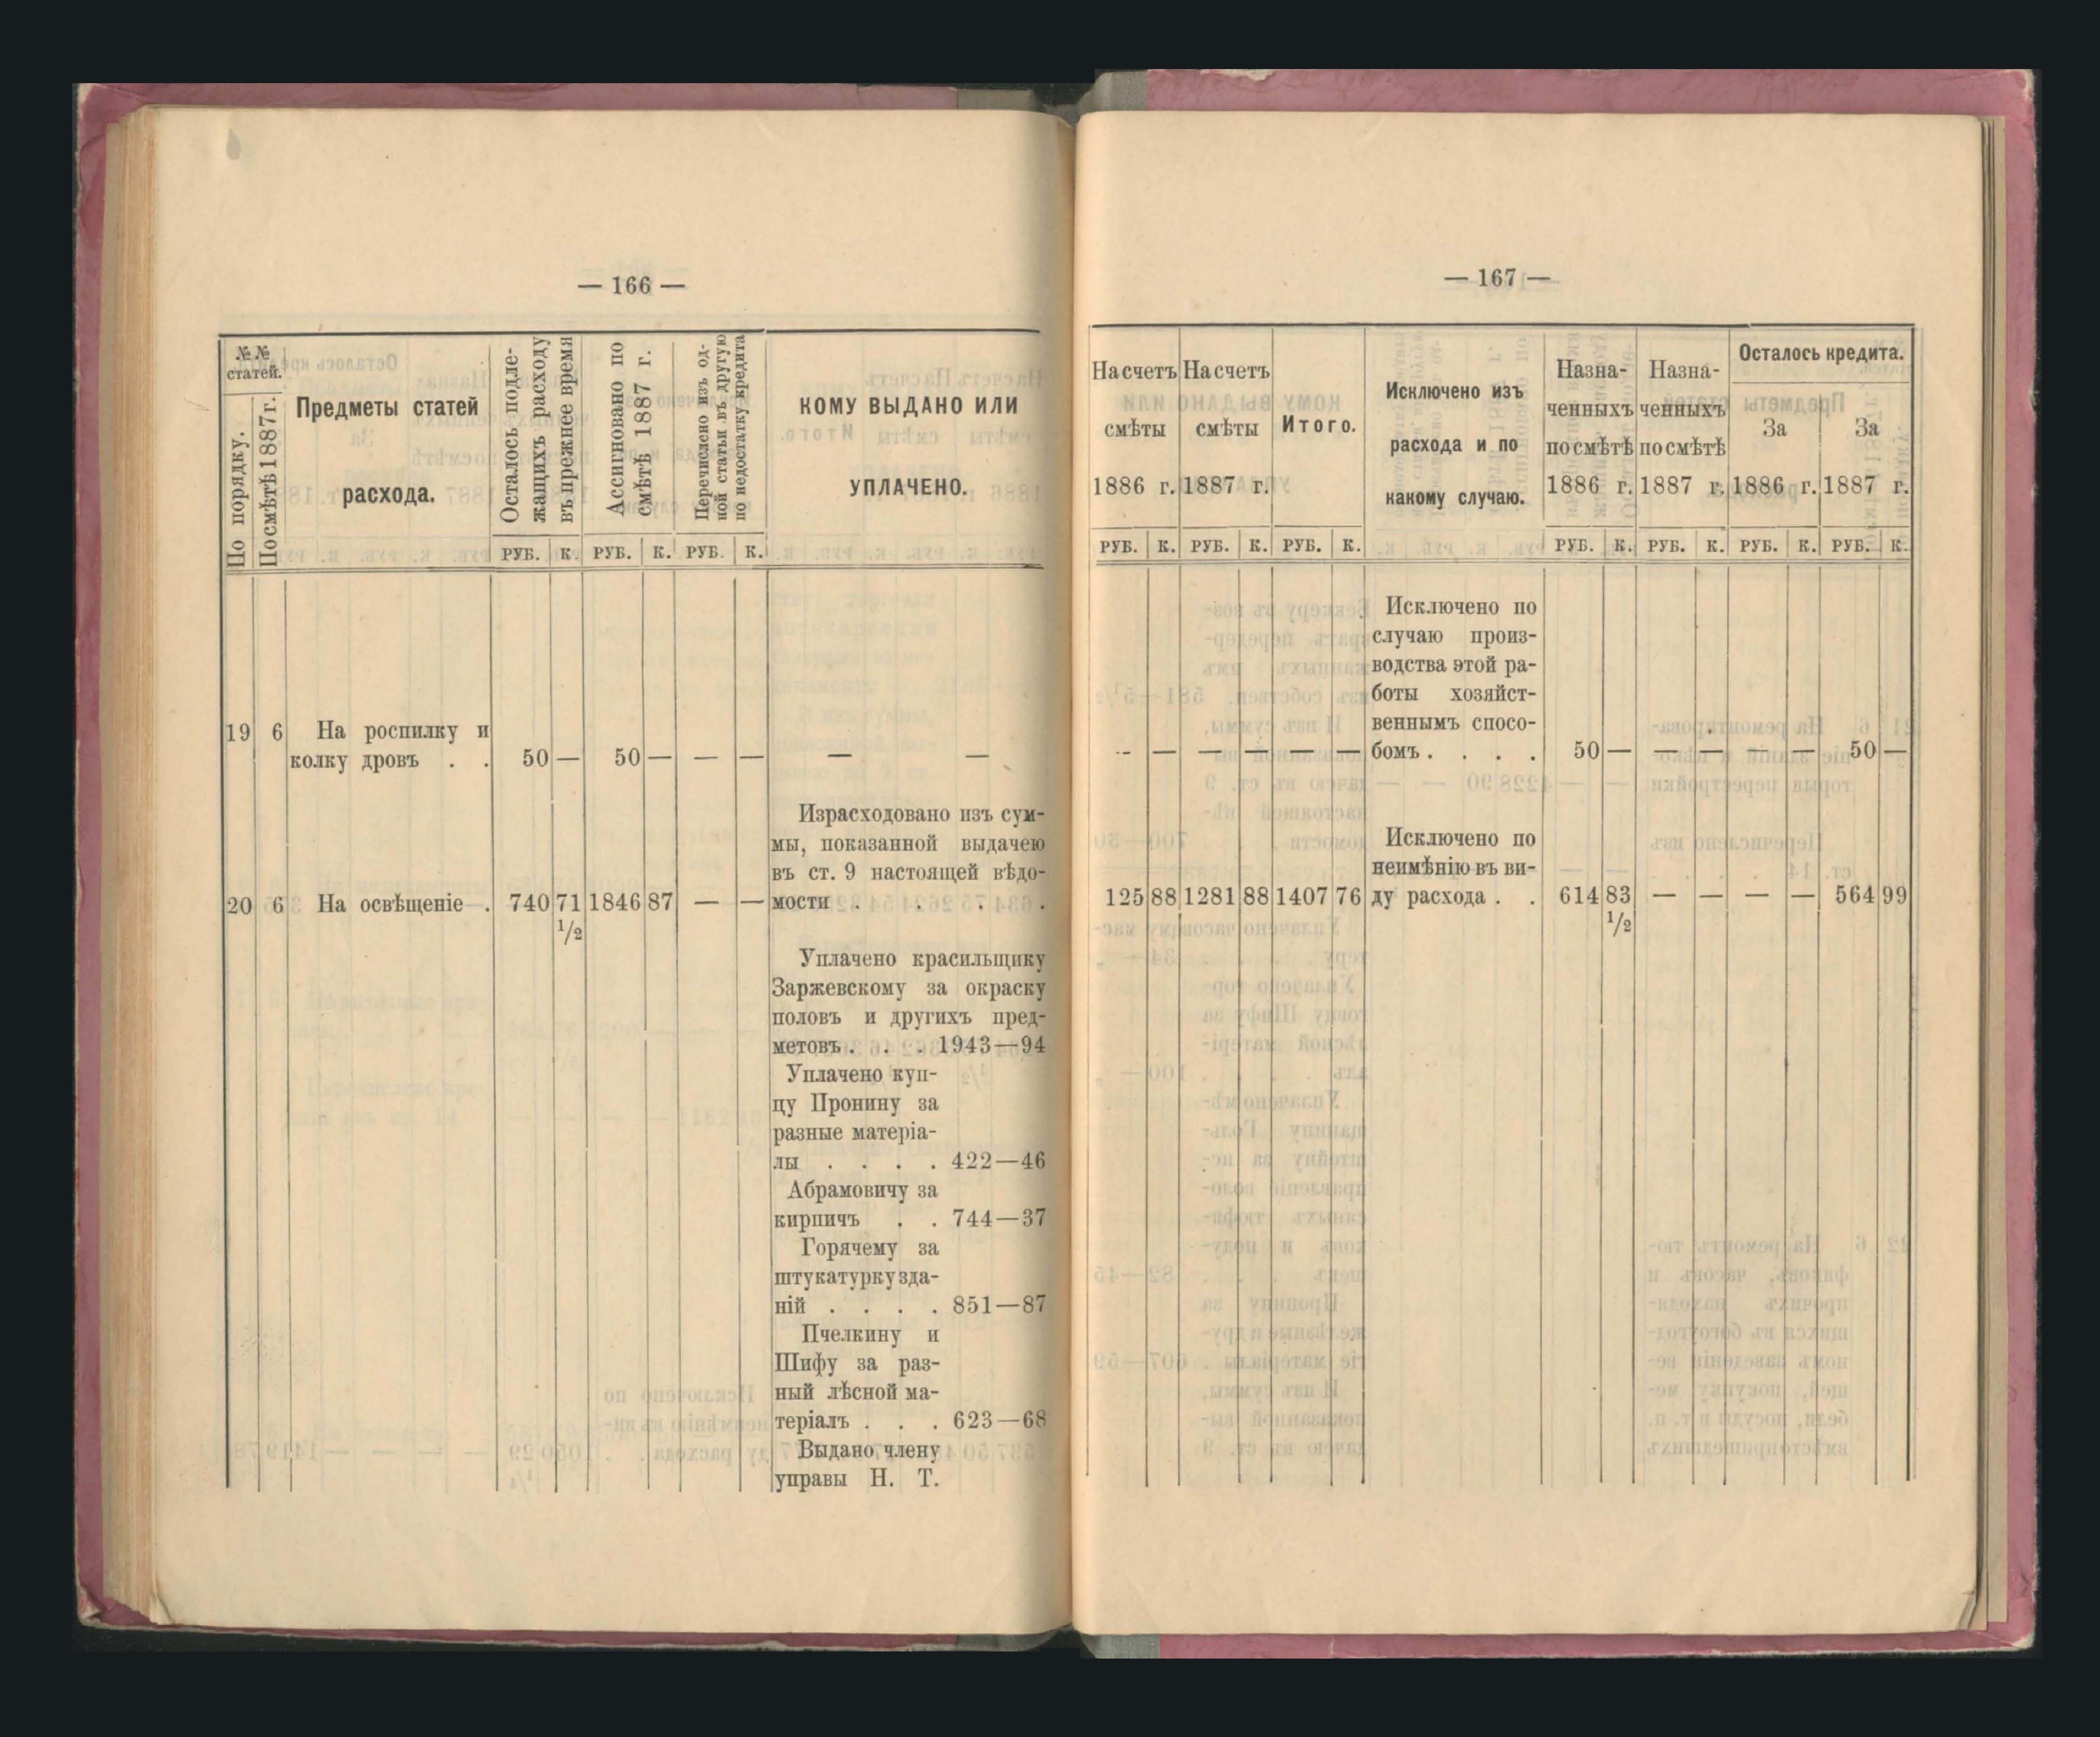 — 166 —
№№ статей.
По порядку.
По смѣтѣ 1887 г.
Предметы статей
расхода.
Осталось подле-
жащихъ расходу
въ прежнее время
Ассигновано по
смѣтѣ 1887 г.
Перечислено изъ од-
ной статьи въ другую
по недостатку кредита
КОМУ ВЫДАНО ИЛИ
УПЛАЧЕНО.
РУБ. К. РУБ. К. РУБ. К.
19 6 На роспилку и
колку дровъ . . 50 — 50 — — — — —
Израсходовано изъ сум-
мы, показанной выдачею
въ ст. 9 настоящей вѣдо-
20 6 На освѣщеніе . 740 71 1846 87 — — мости . . . .
1/2
Уплачено красильщику
Заржевскому за окраску
половъ и другихъ пред-
метовъ . . . 1943—94
Уплачено куп-
цу Пронину за
разные матеріа-
лы . . . . 422—46
Абрамовичу за
кирпичъ . . 744—37
Горячему за
штукатурку зда-
ній . . . . 851—87
Пчелкину и
Шифу за раз-
ный лѣсной ма-
теріалъ . . . 623—68
Выдано члену
управы Н. Т.
— 167 —
На счетъ
смѣты
1886 г.
На счетъ
смѣты
1887 г.
Итого.
Исключено изъ
расхода и по
какому случаю.
Назна-
ченныхъ
по смѣтѣ
1886 г.
Назна-
ченныхъ
по смѣтѣ
1887 г.
Осталось кредита.
За
1886 г.
За
1887 г.
РУБ. К. РУБ. К. РУБ. К. РУБ. К. РУБ. К. РУБ. К. РУБ. К.
Исключено по
случаю произ-
водства этой ра-
боты хозяйст-
веннымъ спосо-
— — — — — — бомъ . . . . 50 — — — — — 50 —
Исключено по
неимѣнію въ ви-
125 88 1281 88 1407 76 ду расхода . . 614 83 — — — — 564 99
1/2